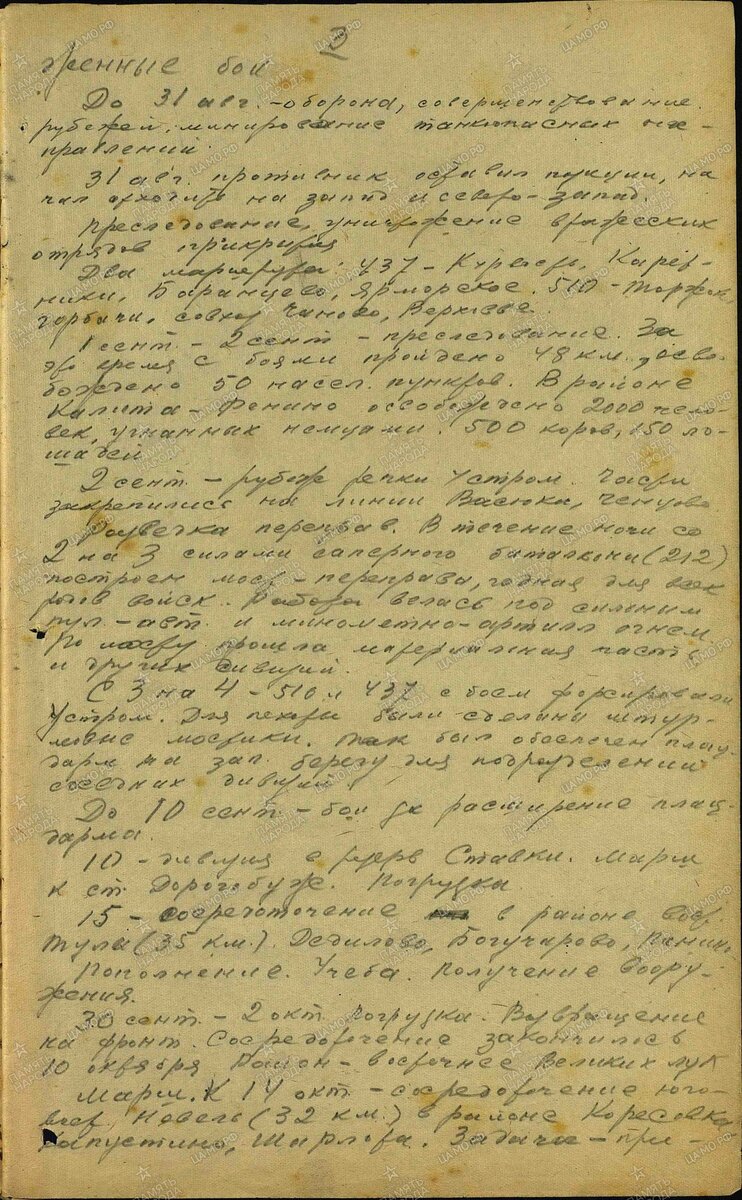 3
женные бои
До 31 авг. – оборона, совершенствование
рубежей, минирование танкоопасных на-
правлений.
31 авг. противник оставил позиции, на
чал отходить на запад и северо-запад.
Преследование, уничтожение вражеских
отрядов прикрытия
Два маршрута: 437 –
ники, Баранцево, Ярморское. 510 –
совхоз Чаново,
1 сент. – 2 сент – преследование. За
это время с боями пройдено 48 км., осво-
бождено 50 насел. пунктов. В районе
Калита – Фенино освобождено 2000 чело-
век, угнанных немцами. 500 коров, 150 ло-
шадей.
2 сент. – рубеж речки Устром. Части
закрепились на линии Васюки, Ченцово
Разведка переправ. В течение ночи со
2 на 3 силами саперного батальона (212)
построен мост – переправа, годная для всех
родов войск. Работа велась под сильным
пул.-авт. и минометно-артилл огнем.
По мосту прошла материальная часть
и других дивизий.
С 3 на 4 – 510 и 437 с боем форсировали
Устром. Для пехоты были сделаны штур-
мовые мостики. Так был обеспечен плац-
дарм на зап. берегу для подразделений
соседних дивизий.
До 10 сент. – бои за расширение плац-
дарма.
10 – дивизия в резерв Ставки. Марш
к ст. Дорогобуж. Погрузка
15 – сосредоточение в районе вост
Тула (35 км.). Дедилово, Богучарово,
Пополнение. Учеба. Получение воору-
жения.
30 сент. – 2 окт. погрузка. Возвращение
на фронт. Сосредоточение закончилось
10 октября Район – восточнее Великих Лук
Марш. К 14 окт. – сосредоточение юго-
вост. Невель (32 км.) в районе
Капустино, Задача – при-